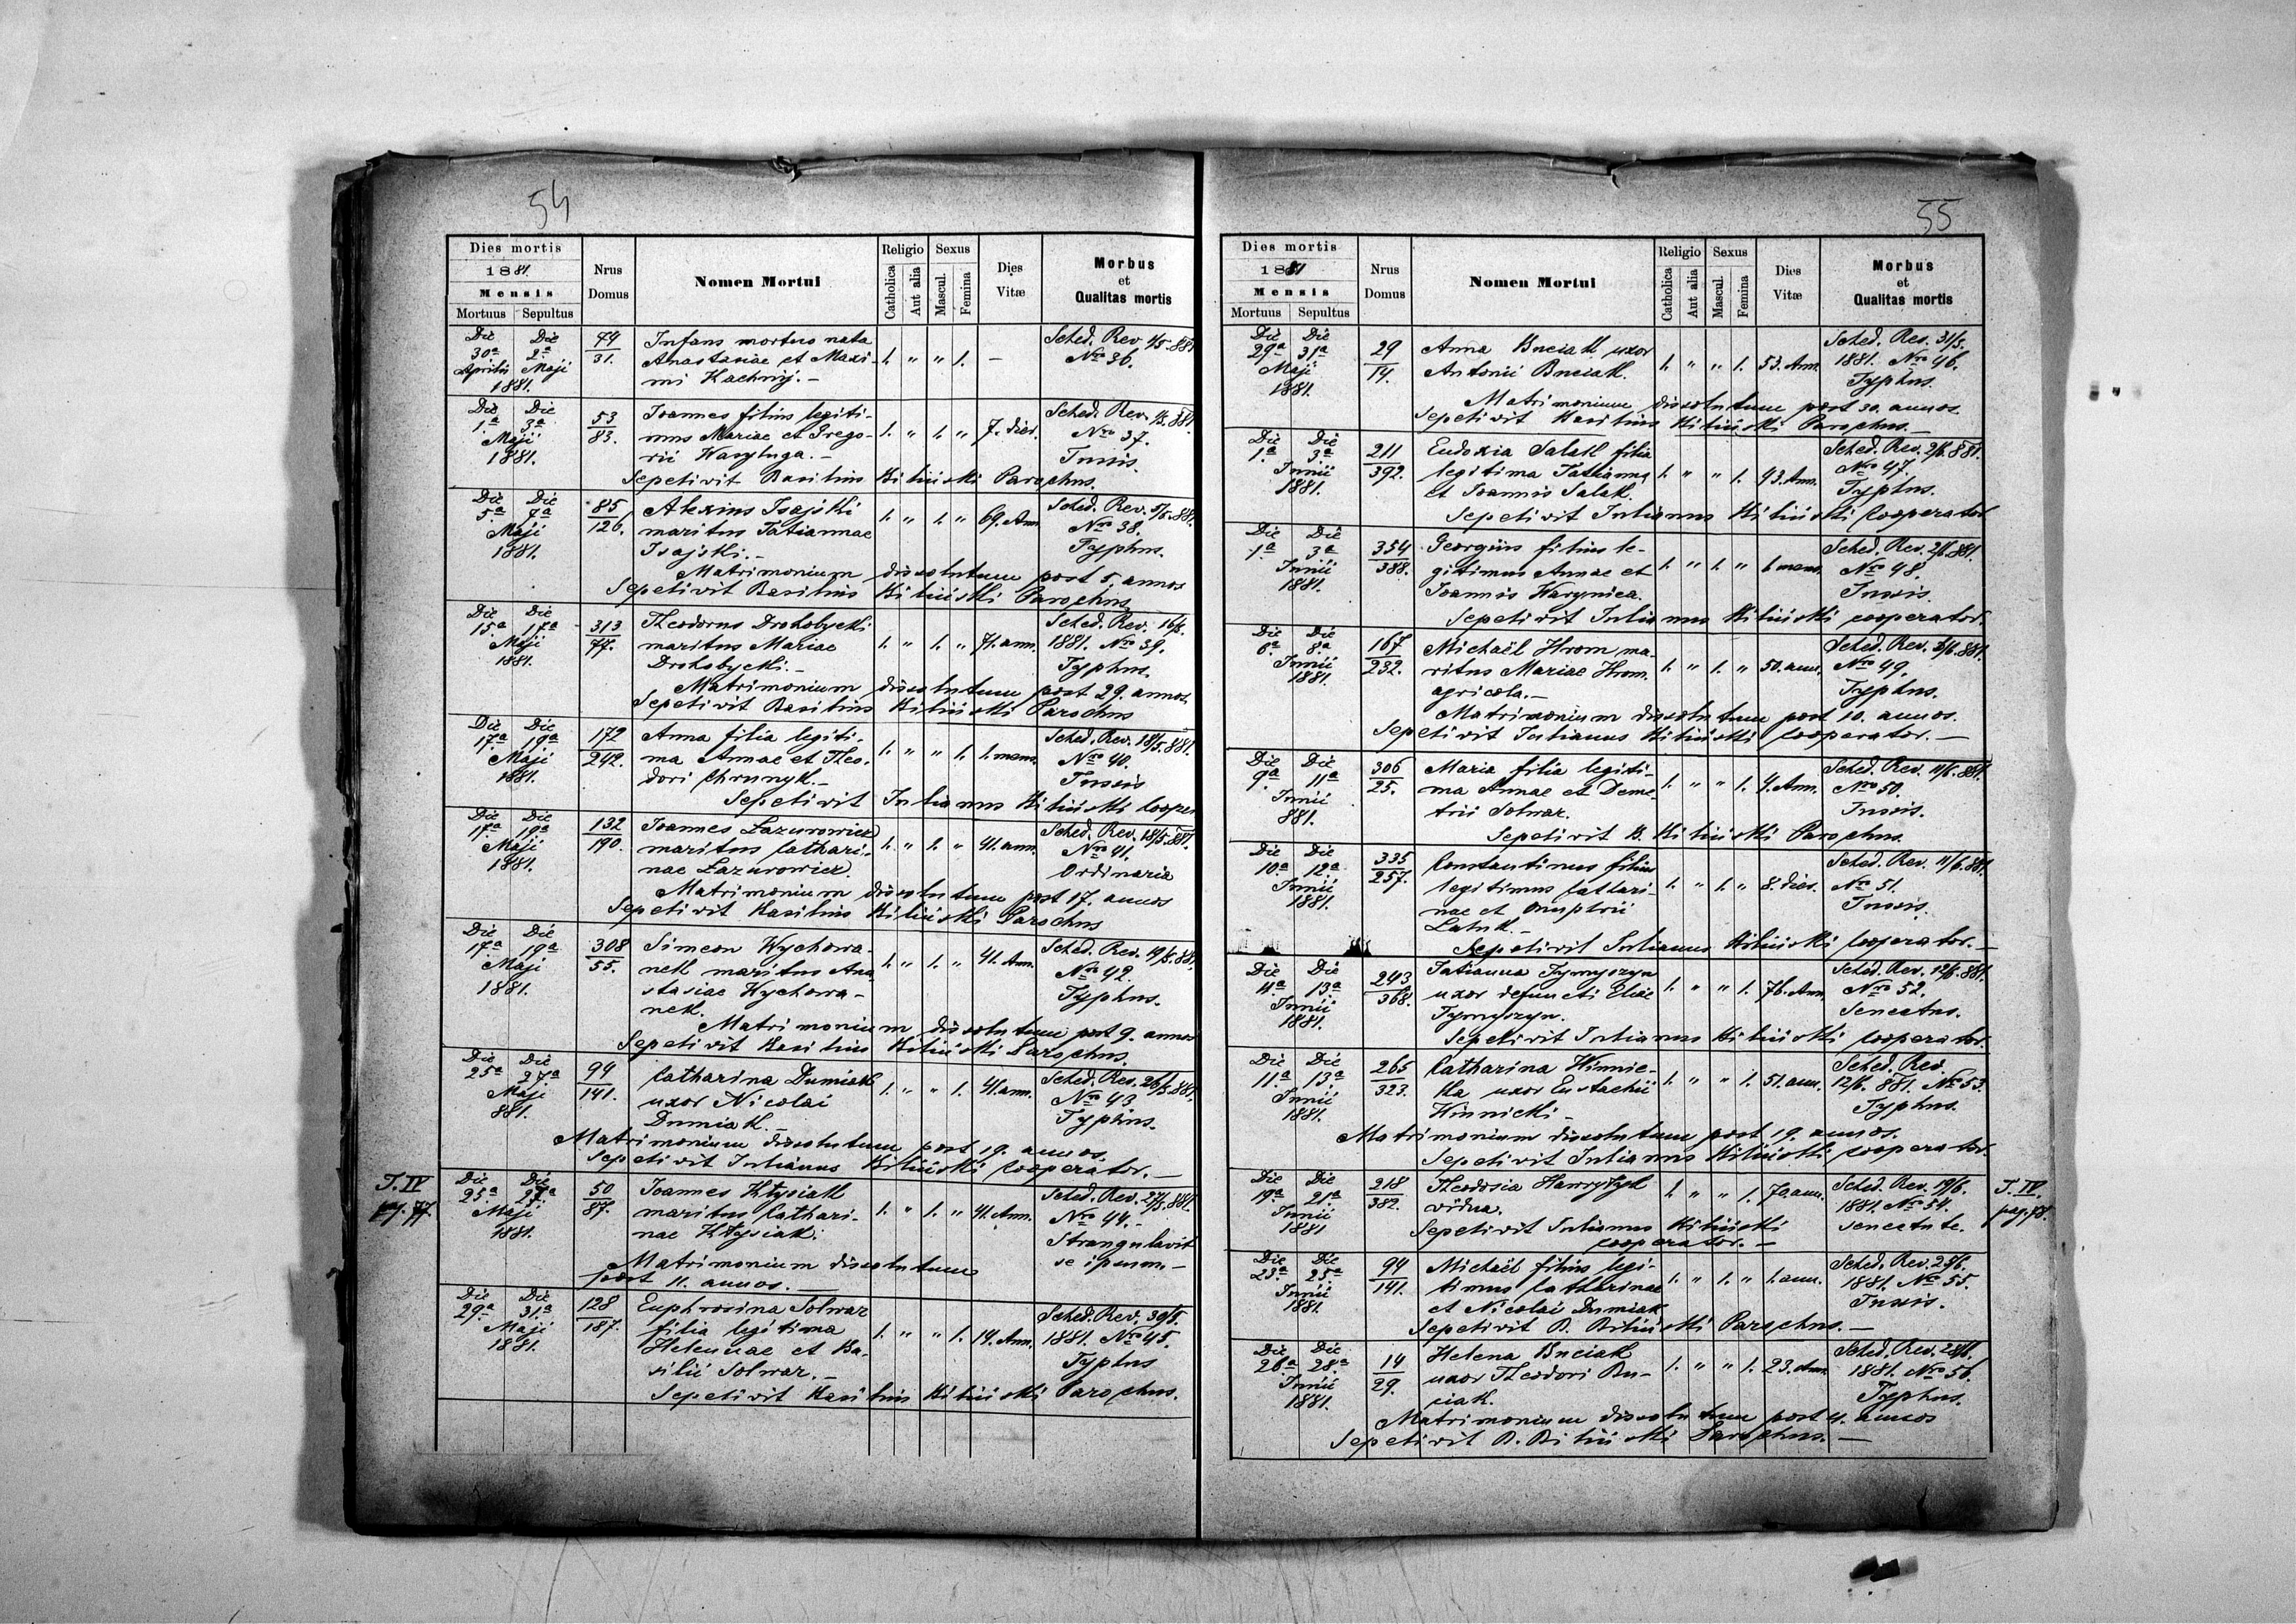 54
Dies mortis
1881.
Mensis
Mortuus Sepultus
Nrus Domus
Nomen Mortui
Religio
Catholica Aut alia
Sexus
Mascul. Femina
Dies Vitæ
Morbus et Qualitas mortis
Die Die 79 Infans mortuo nata Sched. Rev. 1/5.881
30ª 2ª 31. Anastasiae et Maxi- 1. " " 1. — Nro 36.
Aprilis Maji mi
1881.
Die Die 53 Joannes filius legiti- Sched. Rev. 1/5.881
1.ª 3ª 83. mus Mariae et Grego- 1. " 1. " 7. dies. Nro 37.
Maji rii Waryluga. — Tussis.
1881.
Sepelivit Basilius Bilinski Parochus.
Die Die 85 Alexius Isajski Sched. Rev. 5/5.881.
5ª 7ª 126. maritus Tatiannae 1. " 1. " 69. Ann. Nro 38.
Maji Isajski. — Typhus.
1881.
Matrimonium dissolutum post 5. annos
Sepelivit Basilius Bilinski Parochus
Die Die 313 Theodorus Drohobycki Sched. Rev. 16/5.
15ª 17ª 77. maritus Mariae 1. " 1. " 71. ann. 1881. Nro 39.
Maji Drohobycki. — Typhus.
1881.
Matrimonium dissolutum post 29. annos.
Sepelivit Basilius Bilinski Parochus
Die Die 172 Anna filia legiti- Sched. Rev. 18/5.881.
17ª 19ª 242. ma Annae et Theo- 1. " " 1. 1. mens. Nro 40.
Maji dori Chrunyk. — Tussis
1881.
Sepelivit Julianus Bilinski Cooper
Die Die 132 Joannes Lazurowicz Sched. Rev. 18/5.881.
17ª 19ª 190. maritus Cathari- 1. " 1. " 41. ann. Nro 41.
Maji nae Lazurowicz. Ordinaria
1881.
Matrimonium dissolutum post 17. annos
Sepelivit Basilius Bilinski Parochus
Die Die 308 Simeon Wychowa- Sched. Rev. 19/5.881.
17ª 19ª 55. nek maritus Ana 1. " 1. " 41. Ann. Nro 42.
Maji stasiae Wychowa- Typhus.
1881. nek.
Matrimonium dissolutum post 9. annos
Sepelivit Basilius Bilinski Parochus.
Die Die 94 Catharina Dumiak Sched. Rev. 26/5.881.
25ª 27ª 141. uxor Nicolai 1. " " 1. 41. ann. Nro 43
Maji Dumiak. — Typhus.
881.
Matrimonium dissolutum post 19. annos.
Sepelivit Julianus Bilinski Cooperator. —
T. IV Die Die 50 Joannes Klysiak Sched. Rev. 27/5.881.
pag. 77. 25ª 27ª 87. maritus Cathari- 1. " 1. " 41. Ann. Nro 44. -
Maji nae Klysiak. Strangulavit
1881. se ipsum. —
Matrimonium dissolutum
post 11. annos. —
Die Die 128 Euphrosina Solwar Sched. Rev. 30/5.
29ª 31.ª 187. filia legitima 1. " " 1. 19. Ann. 1881. Nro 45.
Maji Helenae et Ba- Typhus
1881. silii Solwar. —
Sepelivit Basilius Bilinski Parochus.
55
Dies mortis
1881
Mensis
Mortuus Sepultus
Nrus Domus
Nomen Mortui
Religio
Catholica Aut alia
Sexus
Mascul. Femina
Dies Vitæ
Morbus et Qualitas mortis
Die Die 29 Anna Buciak uxor Sched. Rev. 31/5.
29ª 31ª 14. Antonii Buciak. 1. " " 1. 53. Ann. 1881. Nro 46.
Maji Typhus.
1881.
Matrimonium dissolutum post 30. annos.
Sepelivit Basilius Bilinski Parochus. —
Die Die 211 Eudoxia Salak filia Sched. Rev. 2/6.881.
1ª 3ª 392. legitima Tatianna 1. " " 1. 43. Ann. Nro 47.
Junii et Joannis Salak. Typhus.
1881.
Sepelivit Julianus Bilinski Cooperator
Die Die 354 Georgius filius le- Sched. Rev. 2/6.881.
1ª 3ª 388. gitimus Annae et 1. " 1. " 6 mens. Nro 48.
Junii Joannis Warynica. Tussis.
1881.
Sepelivit Julianus Bilinski cooperator.
Die Die 167 Michaël Hrom ma- Sched. Rev. 881.
6ª 8ª 232. ritus Mariae Hrom. 1. " 1. " 50. ann. Nro 49.
Junii agricola. — Typhus.
1881.
Matrimonium dissolutum post 10. annos.
Sepelivit Julianus Bilinski Cooperator. —
Die Die 306 Maria filia legiti- Sched. Rev. 11/6.881.
9ª 11ª 25. ma Annae et Deme- 1. " " 1. 4. Ann. Nro 50.
Junii trii Solwar. Tussis.
881.
Sepelivit B. Bilinski Parochus.
Die Die 335 Constantinus filius Sched. Rev. 11/6.881.
10ª 12ª 257. legitimus Cathari- 1. " 1. " 8. dies. Nro 51.
Junii nae et Onuphrii Tussis.
1881.
Sepelivit Julianus Bilinski Cooperator. —
Die Die 243 Tatianna Tymyszyn Sched. Rev. 12/6.881.
11ª 13ª 368. uxor defuncti Eliae 1. " " 1. 76. Ann. Nro 52.
Junii Tymyszyn. Senectus.
1881.
Sepelivit Julianus Bilinski Cooperator
Die Die 265 Catharina Winnic- Sched. Rev.
11ª 13ª 323. ka uxor Eustachii 1. " " 1. 51. ann. 12/6. 881. Nro 53.
Junii Winnicki — Typhus.
1881.
Matrimonium dissolutum post 19. annos.
Sepelivit Julianus Bilinski Cooperator
Die Die 218 Theodosia Hawrydyk Sched. Rev. 19/6. T. IV.
19ª 21ª 382. vidua. 1. " " 1. 70. ann. 1881. Nro 54. pag. 78.
Junii Sepelivit Julianus Bilinski senectute.
1881 cooperator. —
Die Die 94 Michaël filius legi- Sched. Rev. 25/6.
23ª 25ª 141. timus Catharinae 1. " 1. " 1. ann. 1881. Nro 55.
Junii et Nicolai Dumiak Tussis.
1881.
Sepelivit B. Bilinski Parochus. —
Die Die 14 Helena Buciak Sched. Rev. 28/6.
26ª 28ª 29. uxor Theodori Bu- 1. " " 1. 23. Ann. 1881. Nro 56.
Junii ciak. Typhus.
1881.
Matrimonium dissolutum post 4. annos
Sepelivit B. Bilinski Parochus. —